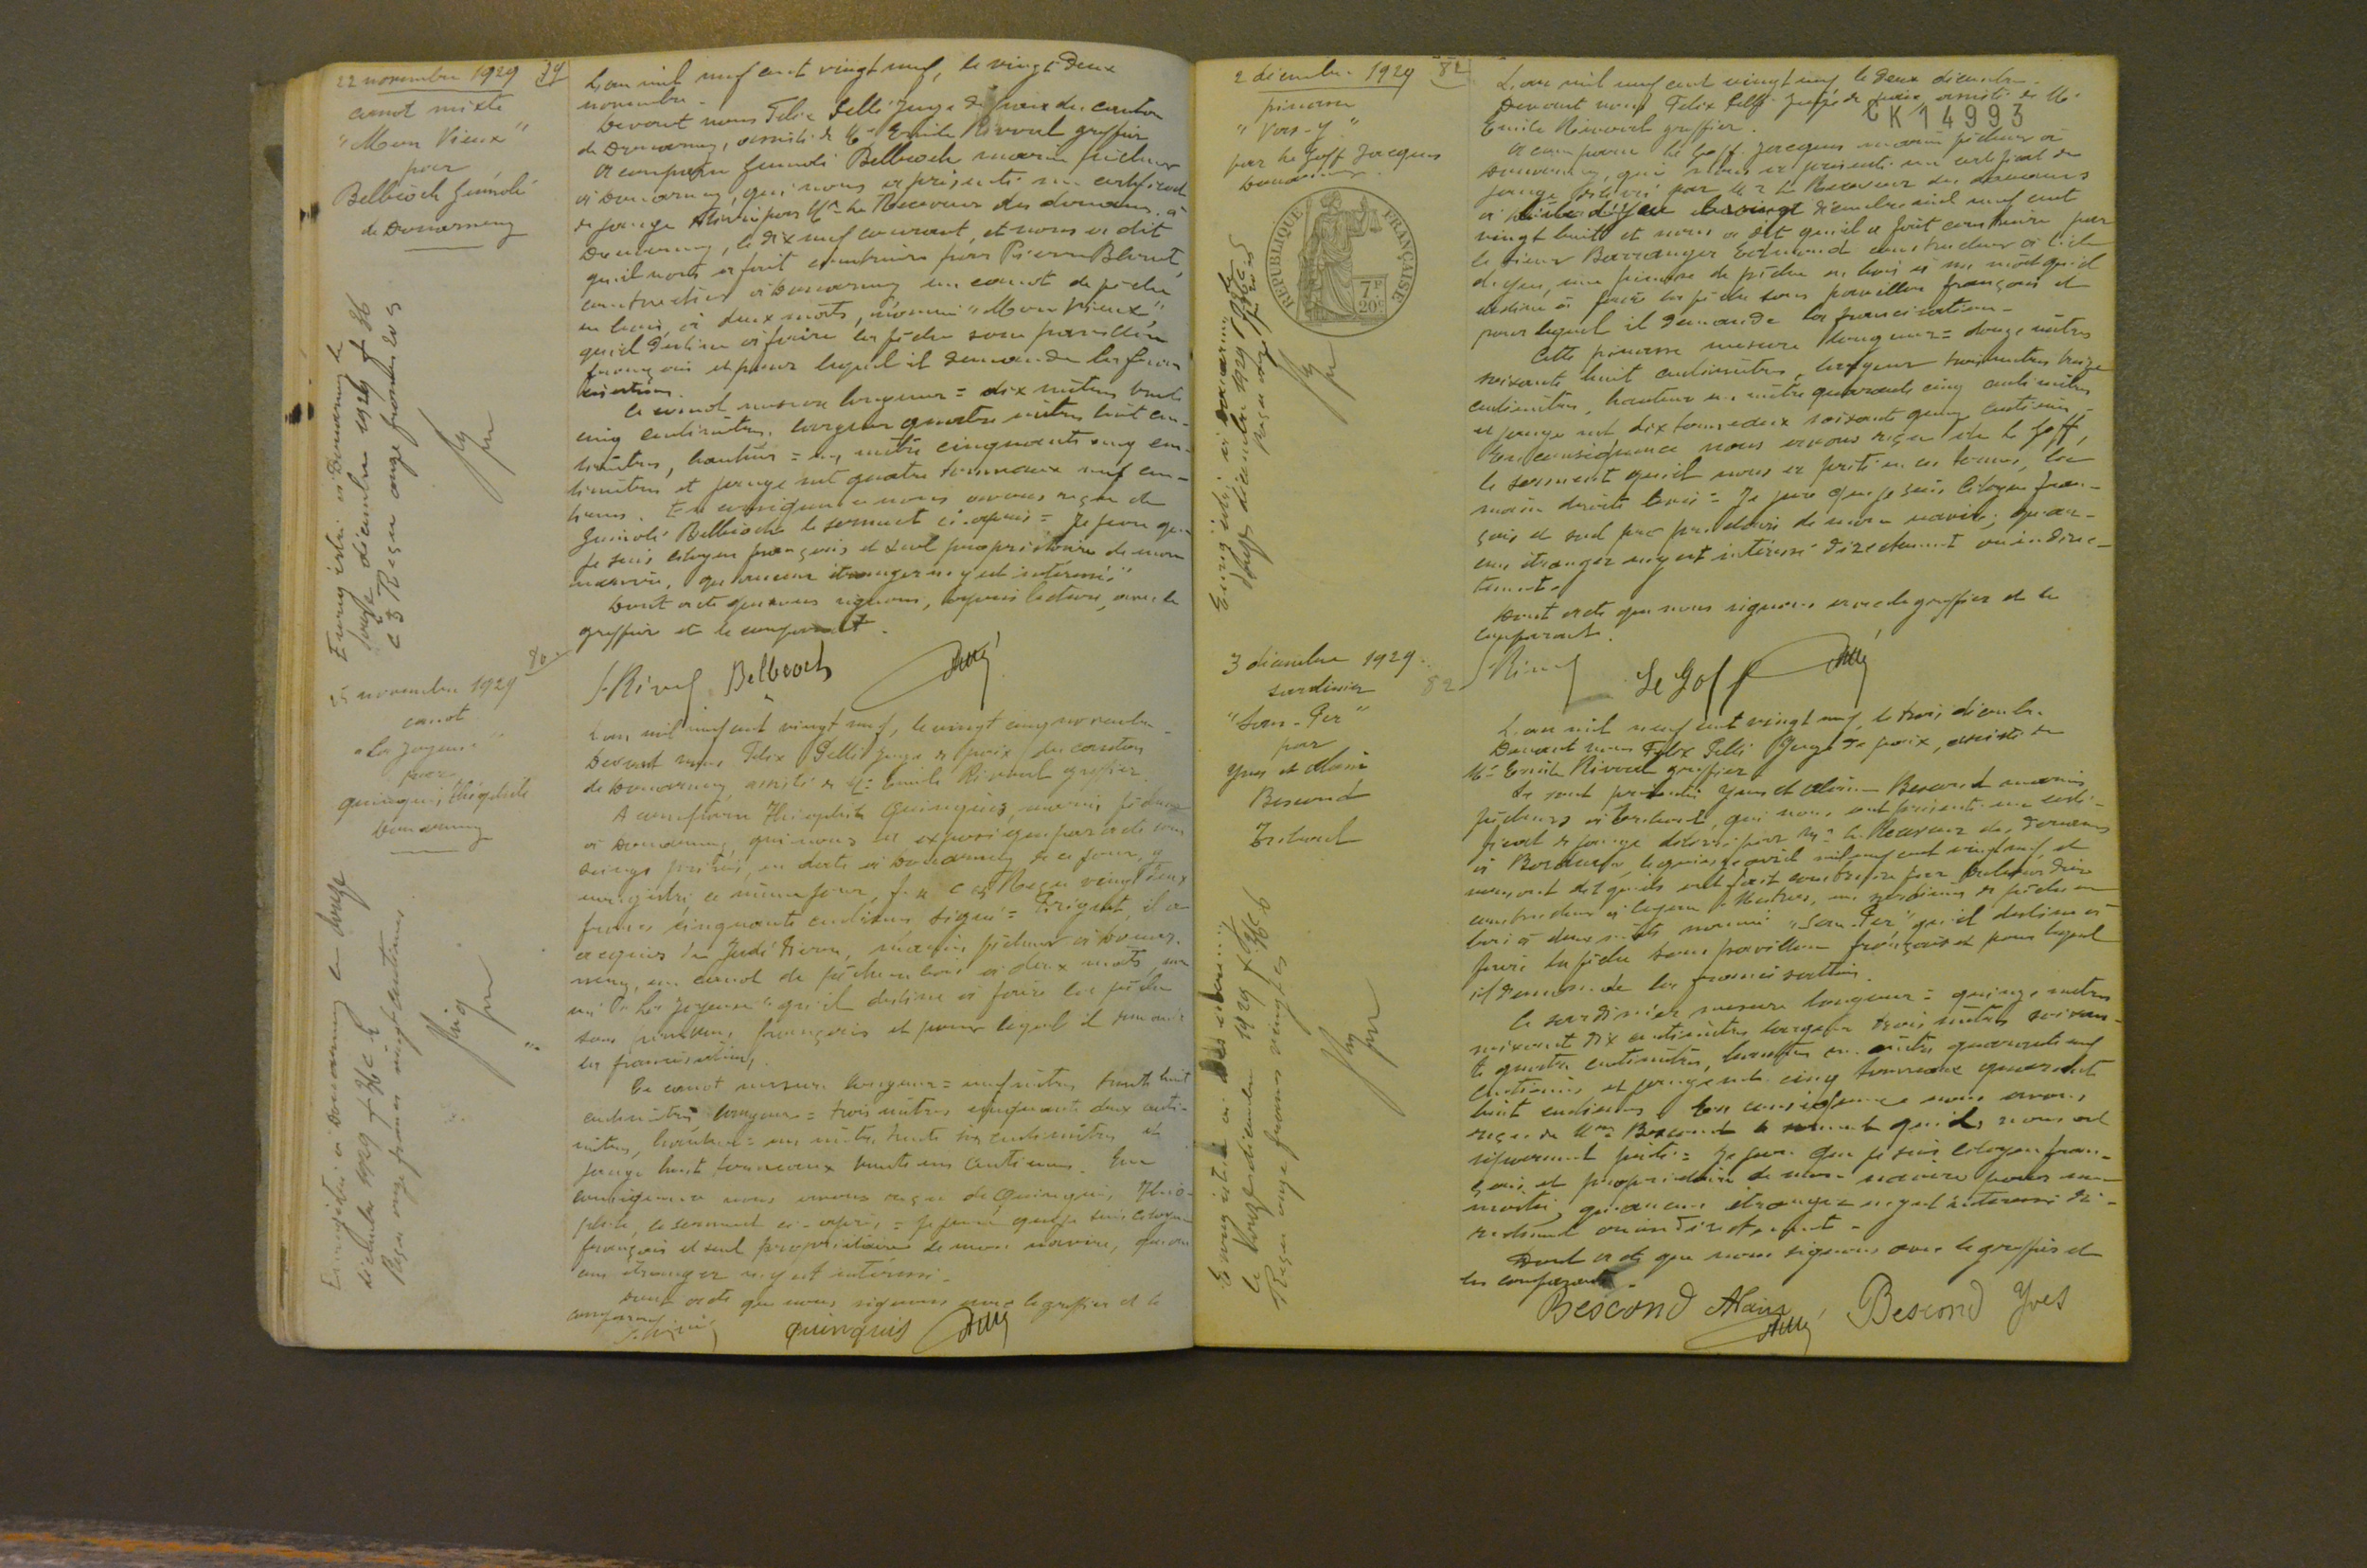 22 novembre 1929 79
canot mixte
"Mon Vieux"
pour
Belbéoch Guénolé
de Douarnenez
Enregistré à Douarnenez le
douze décembre 1929 f 36
c 3 Reçu onze francs
L'an mil neuf cent vingt neuf, le vingt deux
novembre.
Devant nous Felix Gellé Juge de paix du canton
de Douarnenez, assisté de Me Emile Rivoal greffier
a comparu Guénolé Belbéoch marin pêcheur
à Douarnenez, qui nous a présenté un certificat
de jauge délivré par Mr le Receveur des douanes à
Douarnenez, le dix neuf courant, et nous a dit
qu'il nous a fait construire par Pierre
constructeur à Douarnenez un canot de pêche
en bois, à deux mâts, nommé "Mon Vieux",
qu'il destine à faire la pêche sous pavillon
français et pour lequel il demande la franci-
sation.
Ce canot mesure longueur = dix mètres trente
cinq centimètres, largeur quatre mètres huit cen-
timètres, hauteur = un mètre cinquante cinq cen-
timètres et jauge net quatre tonneaux neuf cen-
tièmes. En conséquence nous avons reçu de
Guénolé Belbéoch le serment ci-après = Je jure que
je suis citoyen français et seul propriétaire de mon
navire, qu'aucun étranger n'y est intéressé"
Dont acte que nous signons, après lecture, avec le
greffier et le comparant.
Belbeoch
80
25 novembre 1929
canot
"La Joyeuse"
pour
Quinquis Théophile
Douarnenez
Enregistré à Douarnenez le douze
décembre 1929 f 36 c 4
Reçu onze francs vingt centimes
L'an mil neuf cent vingt neuf, le vingt cinq novembre
Devant nous Felix Gellé Juge de paix du canton
de Douarnenez, assisté de Me Emile Rivoal greffier.
A comparu Théophile Quinquis, marin pêcheur
à Douarnenez, qui nous a exposé que par acte sous
seings privés, en date à Douarnenez de ce jour,
enregistré ce même jour, Reçu vingt deux
francs cinquante centimes signé = il a
acquis de marin pêcheur à Douar-
nenez, un canot de pêche en bois à deux mâts, nom-
mé "La Joyeuse" qu'il destine à faire la pêche
sous pavillon français et pour lequel il demande
la francisation.
Ce canot mesure longueur = neuf mètres trente huit
centimètres, largeur = trois mètres cinquante deux centi-
mètres, hauteur = un mètre trente six centimètres et
jauge huit tonneaux trente un centièmes. En
conséquence nous avons reçu de Quinquis Théo-
phile, le serment ci-après = je jure que je suis citoyen
français et seul propriétaire de mon navire, qu'au-
cun étranger n'y est intéressé.
Dont acte que nous signons avec le greffier et le
comparant
Quinquis
2 décembre 1929 82
pinasse
"Vas-y"
par Le Goff Jacques
Douarnenez
RÉPUBLIQUE FRANÇAISE
7F
20c
Enregistré à Douarnenez le
douze décembre 1929
Reçu
CK 14993
L'an mil neuf cent vingt neuf le deux décembre.
Devant nous Felix Gellé Juge de paix assisté de Me
Emile Rivoal greffier.
A comparu Le Goff Jacques marin pêcheur à
Douarnenez, qui nous a présenté un certificat de
jauge délivré par Mr le Receveur des douanes
à l'île d'Yeu le vingt décembre mil neuf cent
vingt huit et nous a dit qu'il a fait construire par
le sieur Barranger Edmond constructeur à l'île
d'Yeu, une pinasse de pêche en bois à un mât qu'il
destine à faire la pêche sous pavillon français et
pour lequel il demande la francisation.
Cette pinasse mesure longueur = douze mètres
soixante huit centimètres, largeur trois mètres treize
centimètres, hauteur un mètre quarante cinq centimètres
et jauge net dix tonneaux soixante quinze centièmes.
En conséquence nous avons reçu de Le Goff,
le serment qu'il nous a prêté en ces termes, la
main droite levée = Je jure que je suis citoyen fran-
çais et seul propriétaire de mon navire, qu'au-
cun étranger n'y est intéressé directement ou indirec-
tement.
Dont acte que nous signons avec le greffier et le
comparant.
Le Goff
3 décembre 1929 82
sardinier
"Sans-Per"
par
Yves et Alain
Bescond
Tréboul
Enregistré à Douarnenez
le douze décembre 1929 f 36 c 6
Reçu onze francs vingt
L'an mil neuf cent vingt neuf, le trois décembre
Devant nous Felix Gellé Juge de paix, assisté de
Me Emile Rivoal greffier
Se sont présentés Yves et Alain Bescond marins
pêcheurs à Tréboul, qui nous ont présenté un certi-
ficat de jauge délivré par Mr le Receveur des douanes
à Bordeaux, le quinze avril mil neuf cent vingt neuf, et
nous ont dit qu'ils ont fait construire par
constructeur à Gujan Mestras, un sardinier de pêche en
bois à deux mâts nommé "Sans Per" qu'il destine à
faire la pêche sous pavillon français et pour lequel
il demande la francisation.
Ce sardinier mesure longueur = quinze mètres
soixante dix centimètres largeur trois mètres soixan-
te quatre centimètres, hauteur un mètre quarante neuf
centimes et jauge net cinq tonneaux quarante
huit centièmes. En conséquence nous avons
reçu de Mrs Bescond le serment qu'ils nous ont
séparément prêté = Je jure que je suis citoyen fran-
çais et propriétaire de mon navire pour une
moitié, qu'aucun étranger n'y est intéressé di-
rectement ou indirectement.
Dont acte que nous signons avec le greffier et
les comparants.
Bescond Alain Bescond Yves